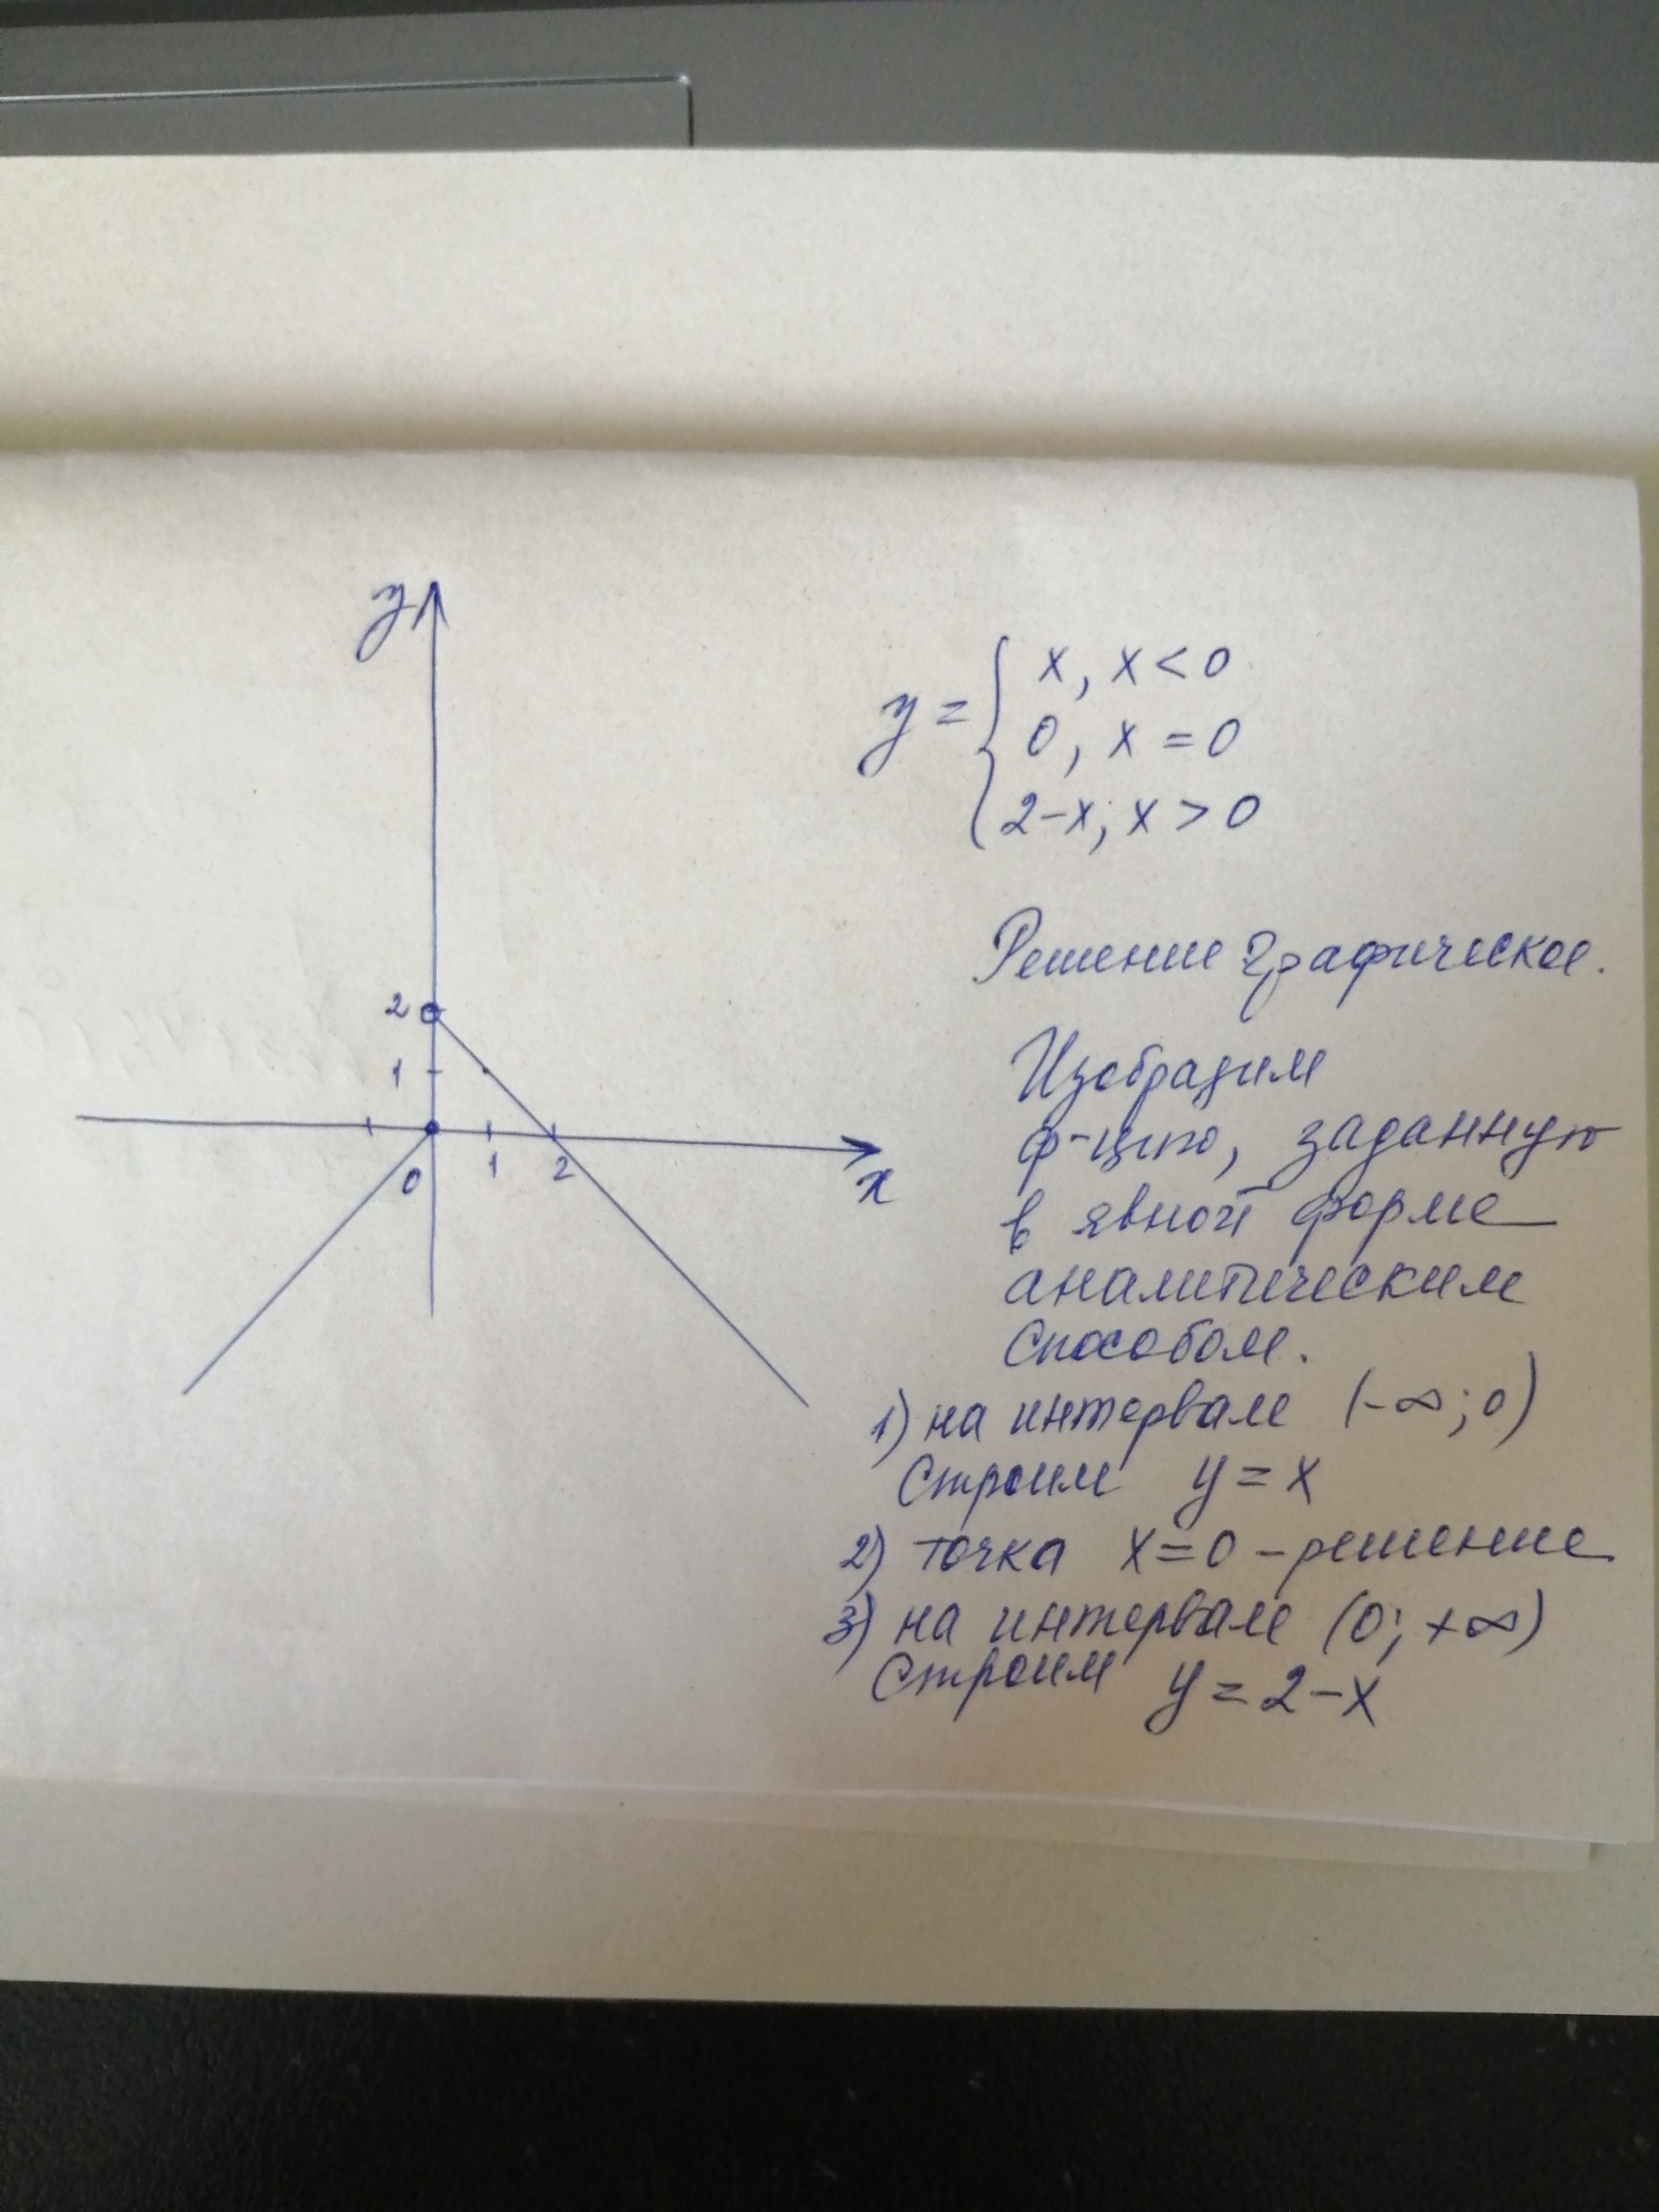 y
2
1
0 1 2
x
y = { x, x < 0
0, x = 0
2-x; x > 0
Решение графическое.
Изобразим
ф-цию, заданную
в явной форме
аналитическим
способом.
1) на интервале (-∞; 0)
строим y = x
2) точка x=0 - решение
3) на интервале (0; +∞)
строим y = 2-x